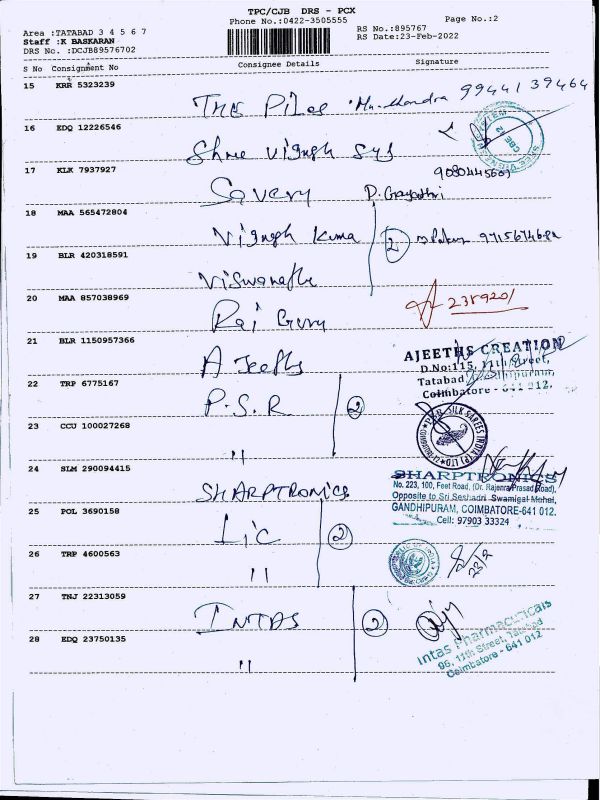 TPC/CJB DRS - PCX
Phone No.:0422-3505555
Page No.:2
Area :TATABAD 3 4 5 6 7
Staff :K BASKARAN
DRS No. :DCJB89576702
RS No.:895767
RS Date:23-Feb-2022
S No Consignment No Consignee Details Signature
15 KRR 5323239
THE Piles 99441 39464
16 EDQ 12226546
Shree Vignesh Sys
17 KLK 7937927
9080445609
Savery D. Gayathri
18 MAA 565472804
Vignesh Kuma 2
19 BLR 420318591
Viswanath
20 MAA 857038969
2389201
Raj Guru
21 BLR 1150957366
AJEETHS CREATION
D.No:115, 11th Street,
Tatabad
Coimbatore - 641 012.
Ajeeths
22 TRP 6775167
P.S.R 2
23 CCU 100027268
SILK SAREES INDIA (P) LTD
"
24 SLM 290094415
SHARPTRONICS
SHARPTRONICS
No. 223, 100, Feet Road, (Dr. Rajenra Prasad Road),
Opposite to Sri Seshadri Swamigal Mahel,
GANDHIPURAM, COIMBATORE-641 012.
Cell: 97903 33324
25 POL 3690158
Lic 2
26 TRP 4600563
"
27 TNJ 22313059
INTAS 2
Intas Pharmaceuticals
96, 11th Street, Tatabad
Coimbatore - 641 012
28 EDQ 23750135
"